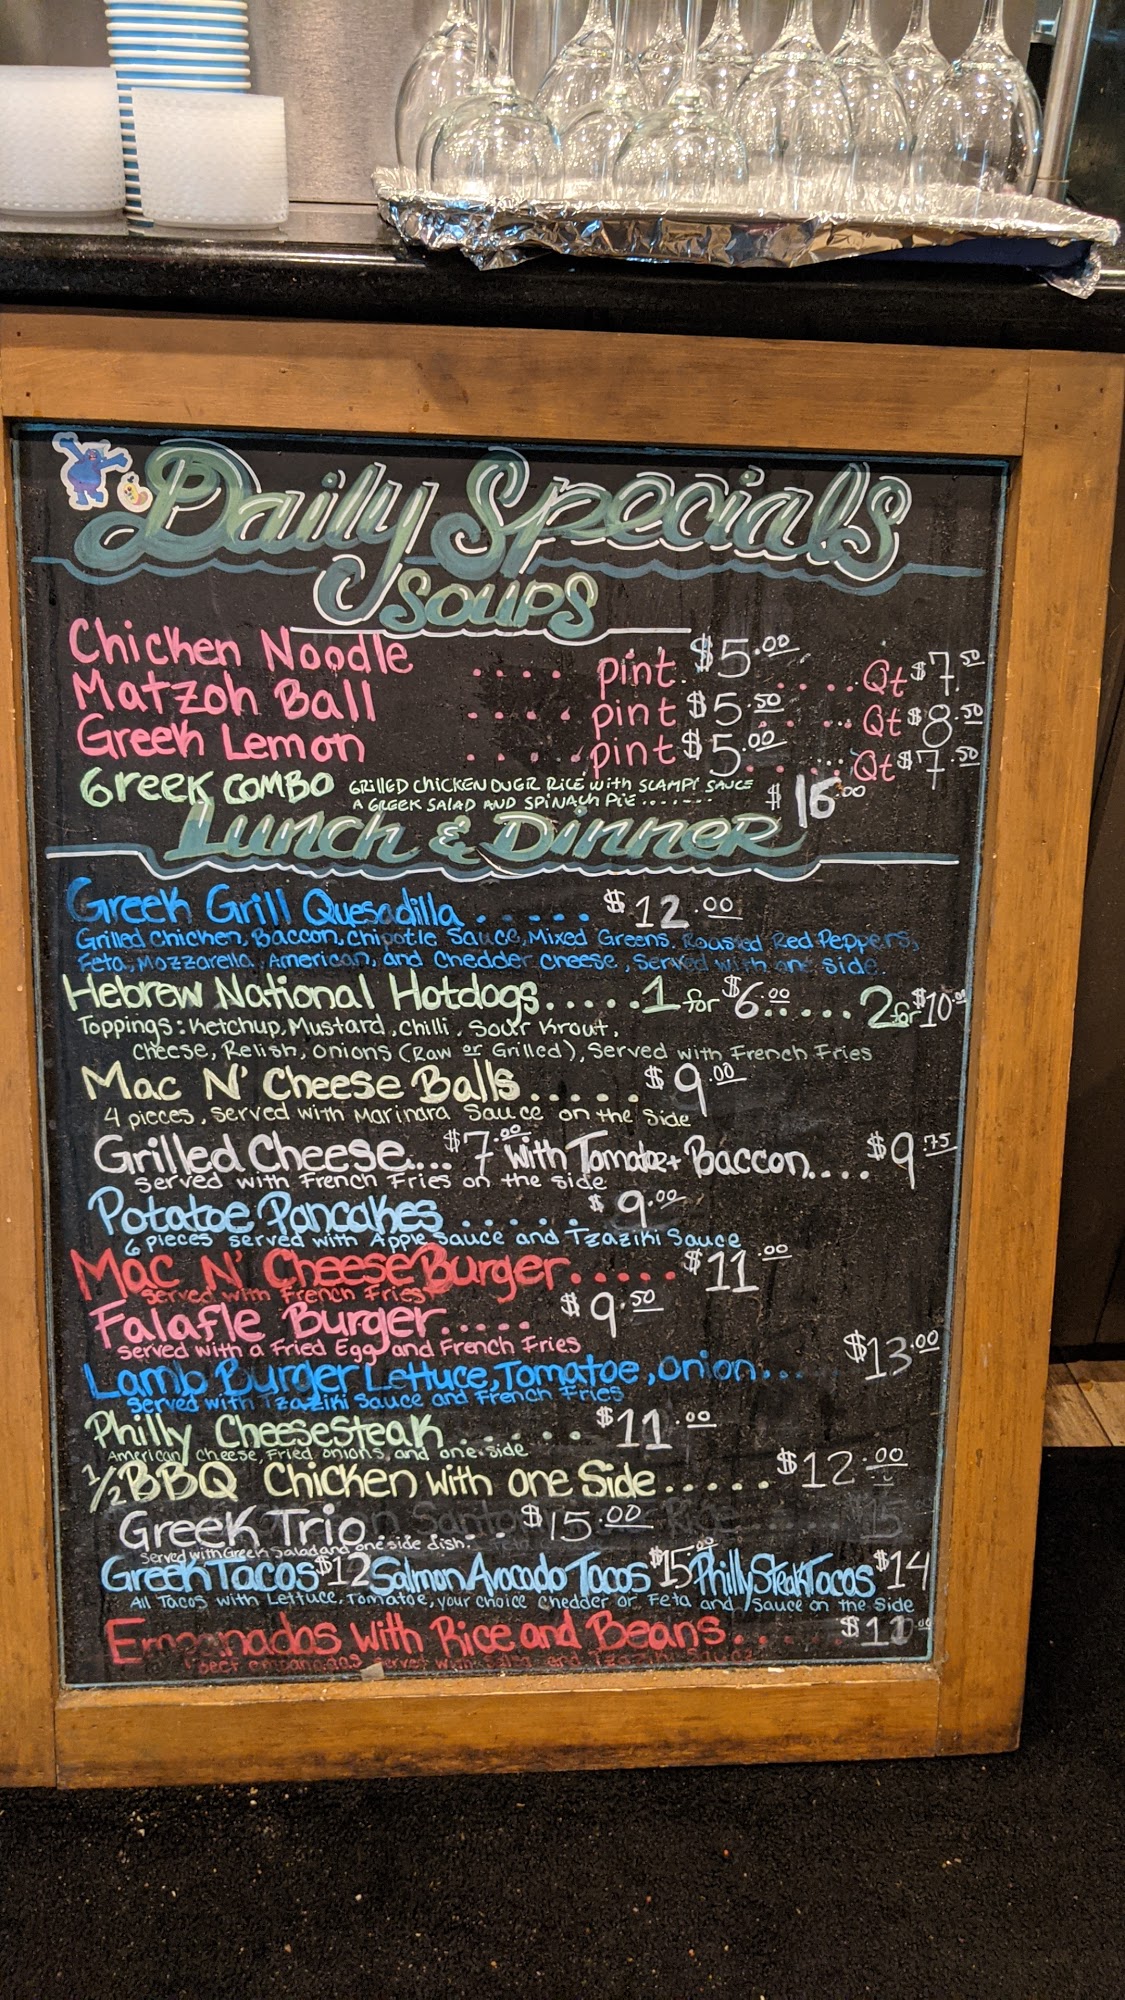 Daily Specials
Soups
Chicken Noodle .... pint. $5.00 .... Qt $7.50
Matzoh Ball .... pint $5.50 .... Qt $8.50
Greek Lemon .... pint $5.00 .... Qt $7.50
Greek Combo Grilled Chicken over Rice with Scampi Sauce
A Greek Salad and Spinach Pie ....... $16.00
Lunch & Dinner
Greek Grill Quesadilla ...... $12.00
Grilled Chicken, Baccon, Chipotle Sauce, Mixed Greens, Roasted Red Peppers,
Feta, Mozzarella, American, and Chedder cheese, Served with one side.
Hebrew National Hotdogs.....1 for $6.00..... 2 for $10.00
Toppings: Ketchup, Mustard, Chilli, Sour Krout,
Cheese, Relish, Onions (Raw or Grilled), Served with French Fries
Mac N' Cheese Balls..... $9.00
4 pieces, served with Marinara Sauce on the Side
Grilled Cheese.... $7.00 with Tomatoe + Baccon.... $9.75
served with French Fries on the side
Potatoe Pancakes ...... $9.00
6 pieces served with Apple Sauce and Tzaziki Sauce
Mac N' Cheese Burger...... $11.00
served with French Fries
Falafle Burger..... $9.50
served with a Fried Egg and French Fries
Lamb Burger Lettuce, Tomatoe, Onion... $13.00
served with Tzaziki Sauce and French Fries
Philly Cheesesteak ...... $11.00
American Cheese, Fried onions, and one side
1/2 BBQ Chicken with one Side..... $12.00
Greek Trio....... $15.00
served with Greek Salad and one side dish.
Greek Tacos $12 Salmon Avocado Tacos $15.00 Philly Steak Tacos $14
All Tacos with Lettuce, Tomatoe, your choice Chedder or Feta and Sauce on the Side
Empanadas with Rice and Beans..
beef empanadas served with Salsa and Tzaziki Sauce